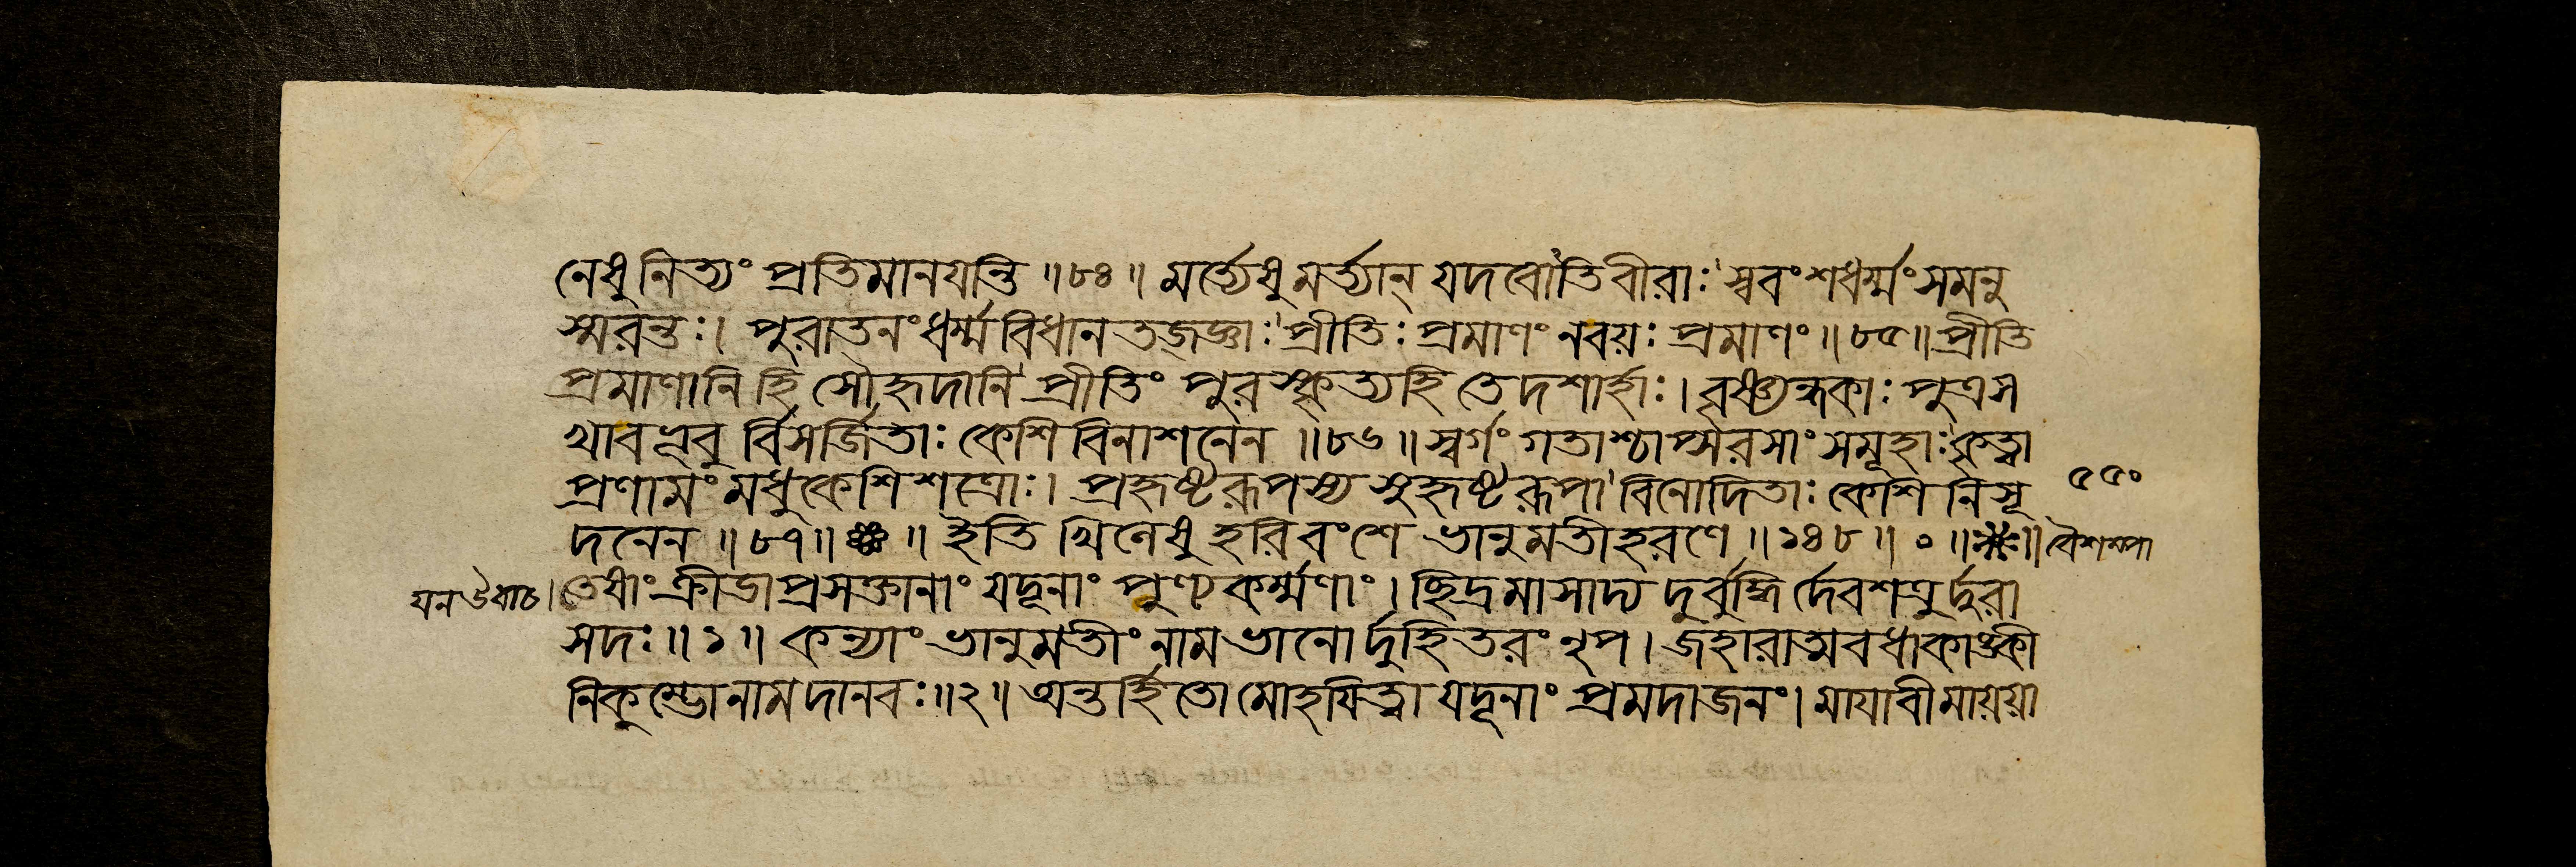 নেষু নিত্যং প্রতিমানযন্তি ॥৮৪॥ মর্ত্যেষু মর্ত্যান্ যদবোতিবীরাঃ স্ববংশধর্ম্মং সমনু
স্মরন্তঃ। পুরাতনং ধর্ম্মবিধানতজ্জ্ঞাঃ প্রীতিঃ প্রমাণং নবয়ঃ প্রমাণং ॥৮৫॥ প্রীতি
প্রমাণানি হি সৌহৃদানি প্রীতিং পুরস্কৃত্যহি তে দশার্হাঃ। বৃষ্ণ্যন্ধকাঃ পুত্রস
খাবভূবু র্বিসর্জিতাঃ কেশিবিনাশনেন ॥৮৬॥ স্বর্গং গতাশ্চাপ্সরসাং সমূহাঃ কৃত্বা
প্রণামং মধুকেশিশত্রোঃ। প্রহৃষ্টরূপস্য সুহৃষ্টরূপা বিনোদিতাঃ কেশি নিসূ
দনেন ॥৮৭॥ ॥ ইতি খিলেষু হরিবংশে ভানুমতীহরণে ॥১৪৮॥ ০ ॥ ॥ বৈশম্পা
৫৫০
যন উবাচ। তেষাং ক্রীডাপ্রসক্তানাং যদূনাং পুণ্যকর্ম্মণাং। ছিদ্রমাসাদ্য দুর্বুদ্ধি র্দেবশত্রুর্দুরা
সদঃ ॥১॥ কন্যাং ভানুমতীং নাম ভানোর্দুহিতরং নৃপ। জহারাত্মবধাকাঙ্ক্ষী
নিকুম্ভোনামদানবঃ ॥২॥ অন্তর্হিতো মোহযিত্বা যদূনাং প্রমদাজনং। মাযাবীমায়য়া